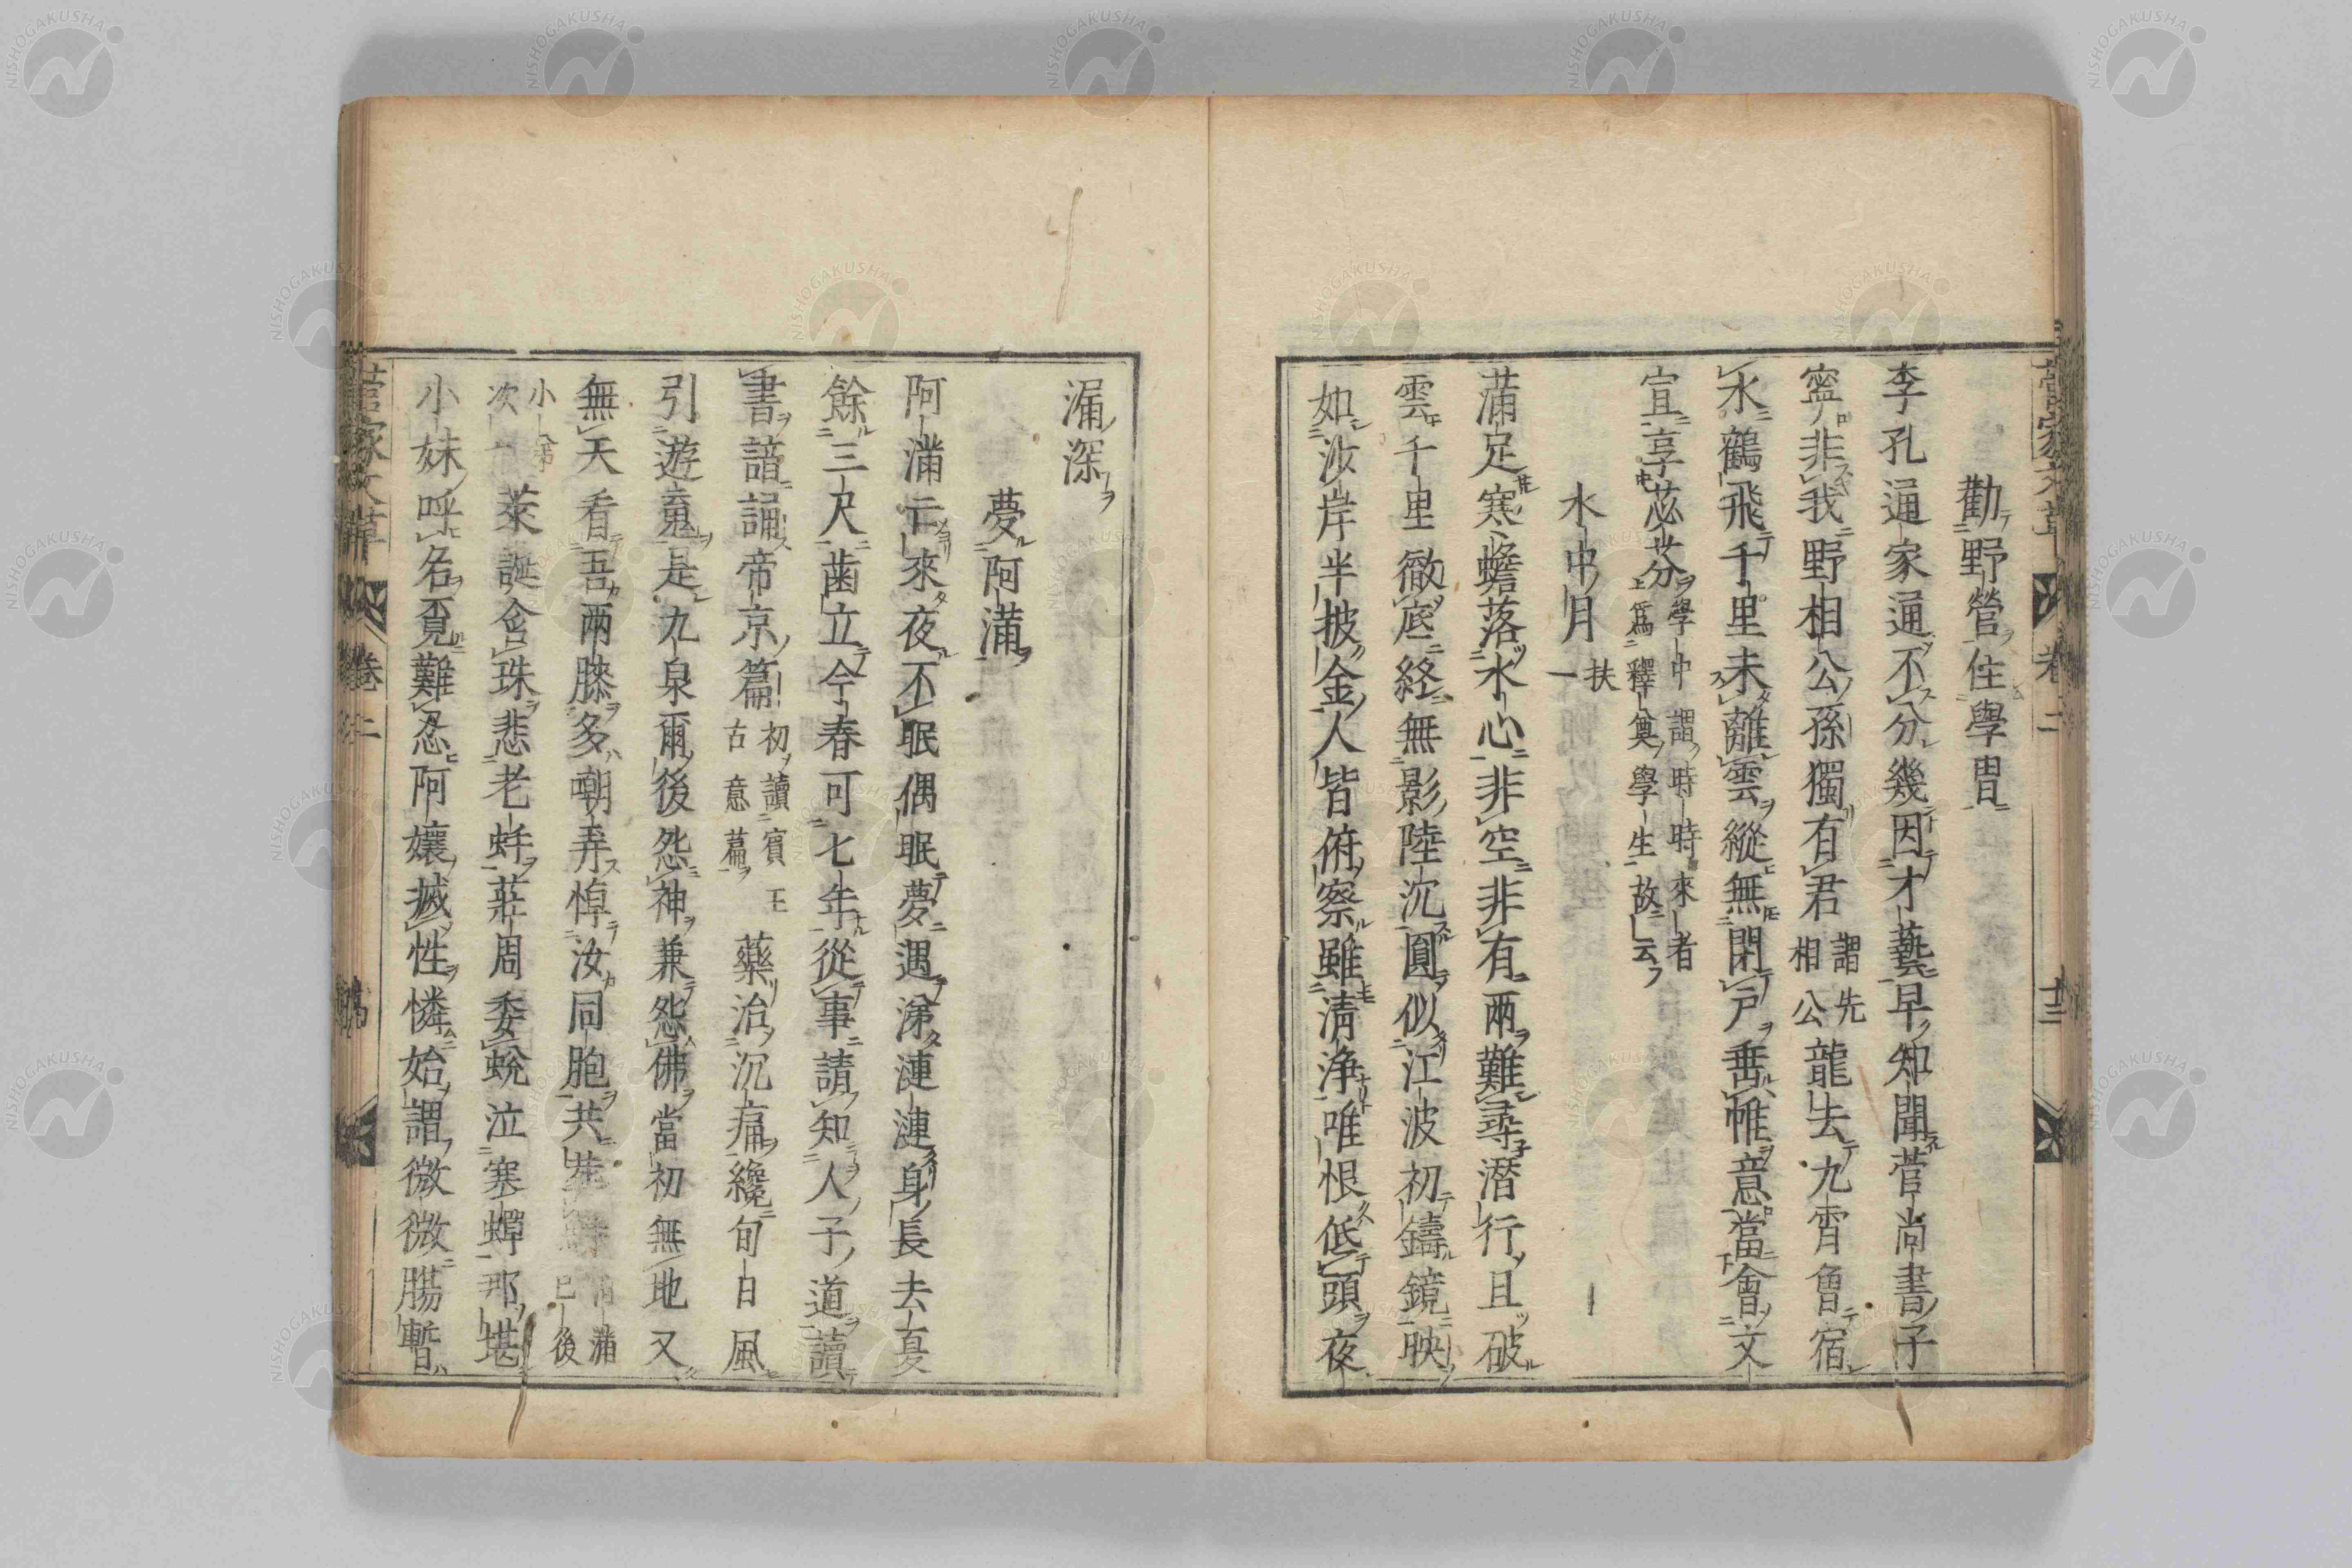 菅家文草　卷二　十二
勸野營住學曹
李孔通家通不分幾因才藝早知聞菅尚書子
寧非我野相公孫獨有君謂先相公龍去九霄魯宿
水鶴飛千里未離雲縱無閉戶垂帷意當會文
宣享苾芬學中謂時時來者上爲釋奠學生故云
水中月一扶
滿足寒蟾落水心非空非有兩難尋潛行且破
雲千里徹底終無影陸沉圓似江波初鑄鏡映
如沙岸半披金人皆俯察雖淸淨唯恨低頭夜
漏深
夢阿滿
阿滿亡來夜不眠偶眠夢遇涕漣漣身長去夏
餘三尺齒立今春可七年從事請知人子道讀
書諳誦帝京篇初讀賓王古意篇藥治沉痛纔旬日風
引遊魂是九泉爾後怨神兼怨佛當初無地又
無天看吾兩膝多嘲弄悼汝同胞共 滿已後
小弟次 萊誕含珠悲老蚌莊周委蛻泣寒蟬那堪
小妹呼名覓難忍阿孃滅性憐始謂微微腸暫
菅家文草　卷二
NISHOGAKUSHA